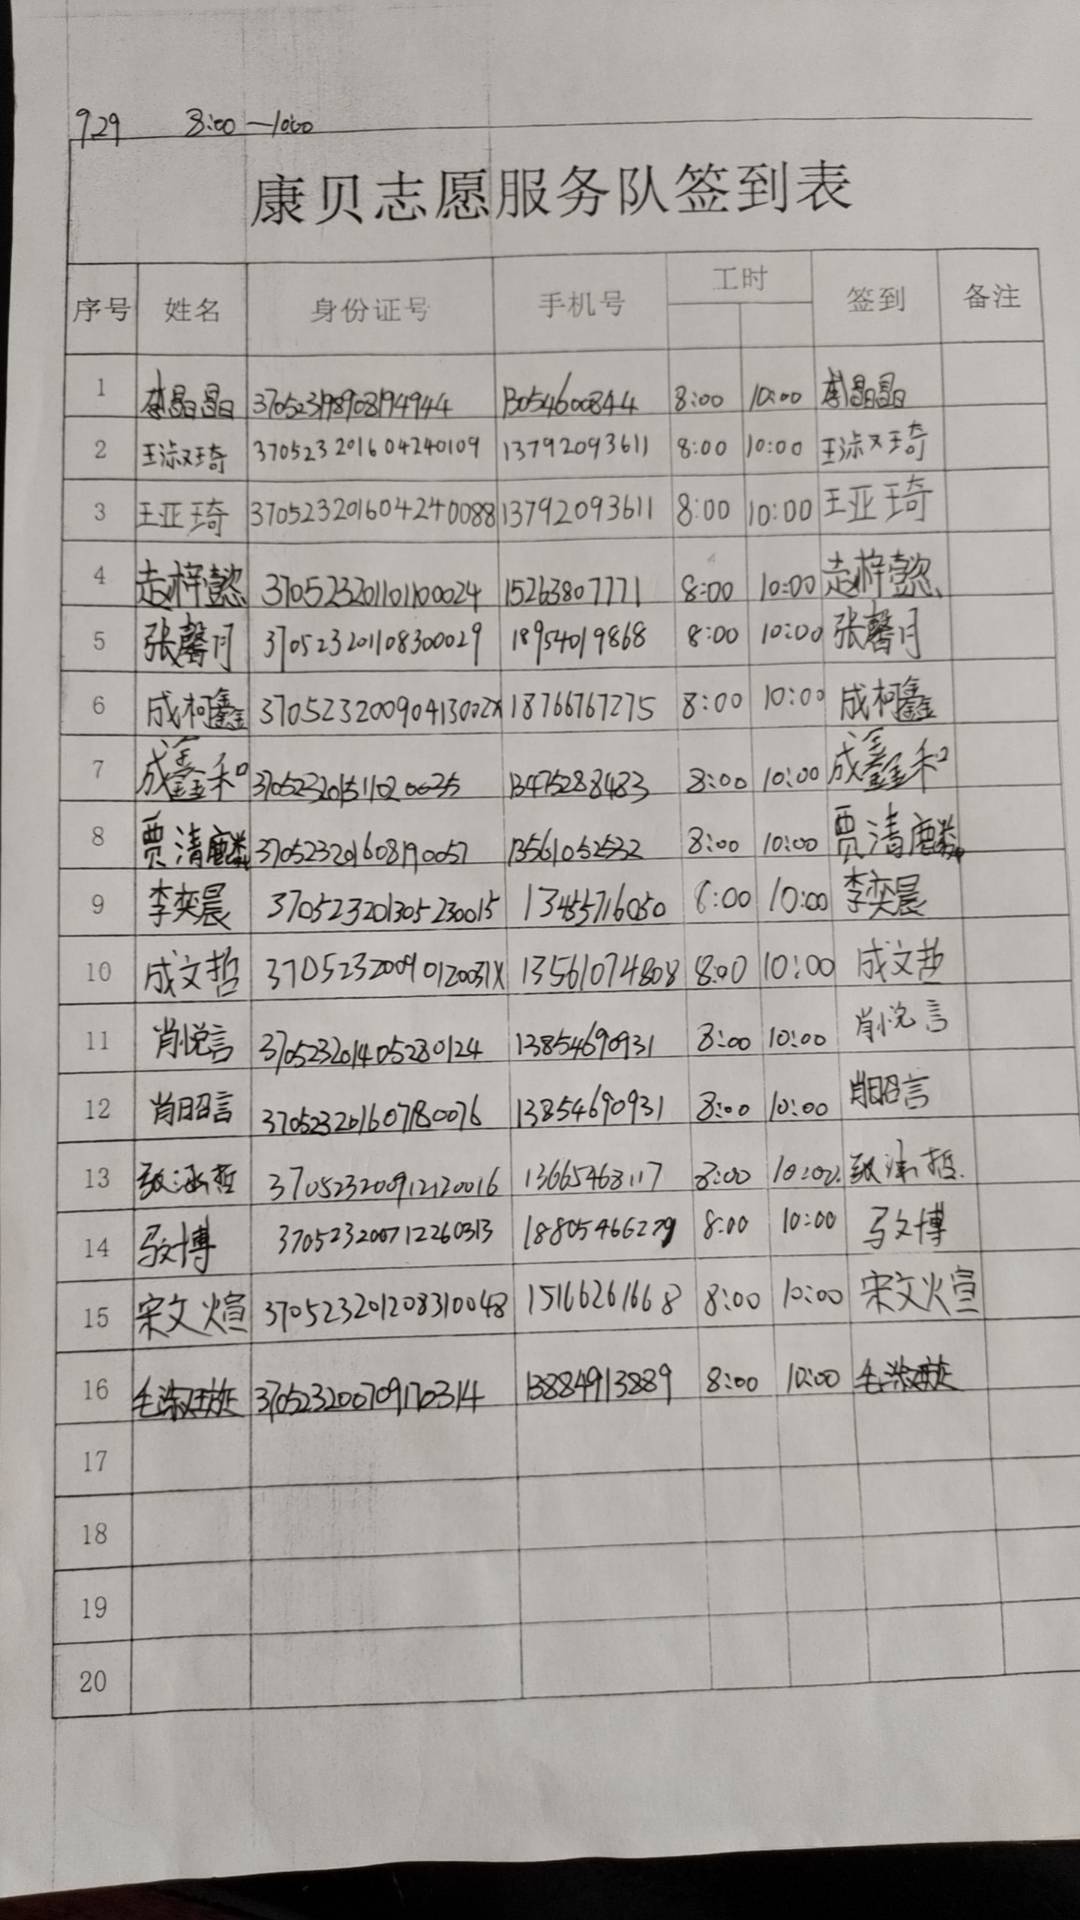 929 8:00—10:00
康贝志愿服务队签到表
序号 姓名 身份证号 手机号 工时 签到 备注
1 李晶晶 370523198908194944 13054600844 8:00 10:00 李晶晶
2 王淑琦 370523201604240109 13792093611 8:00 10:00 王淑琦
3 王亚琦 370523201604240088 13792093611 8:00 10:00 王亚琦
4 赵梓懿 370523201101100024 15263807771 8:00 10:00 赵梓懿
5 张馨月 370523201108300029 18954019868 8:00 10:00 张馨月
6 成柯鑫 37052320090413002X 18766767275 8:00 10:00 成柯鑫
7 成鑫和 370523201511020035 13475288483 8:00 10:00 成鑫和
8 贾清麟 370523201608190057 13561052532 8:00 10:00 贾清麟
9 李奕晨 370523201305230015 13455716050 8:00 10:00 李奕晨
10 成文哲 37052320090120031X 13561074808 8:00 10:00 成文哲
11 肖悦言 370523201405280124 13854690931 8:00 10:00 肖悦言
12 肖昭言 370523201607180076 13854690931 8:00 10:00 肖昭言
13 370523200912120016 13665468117 8:00 10:00
14 马文博 370523200712260313 18805466279 8:00 10:00 马文博
15 宋文煊 370523201208310048 15166261668 8:00 10:00 宋文煊
16 370523200709170314 13884913889 8:00 10:00
17
18
19
20